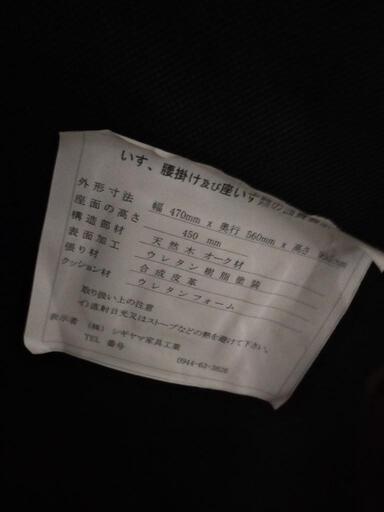 いす、腰掛け及び座いす
外形寸法 幅 470mm x 奥行 560mm x 高さ
座面の高さ 450 mm
構造部材 天然木 オーク材
表面加工 ウレタン樹脂塗装
張り材 合成皮革
クッション材 ウレタンフォーム
取り扱い上の注意
イ)直射日光又はストーブなどの熱を避けて下さい。
表示者 (株) シギヤマ家具工業
TEL 番号 0944-62-3626